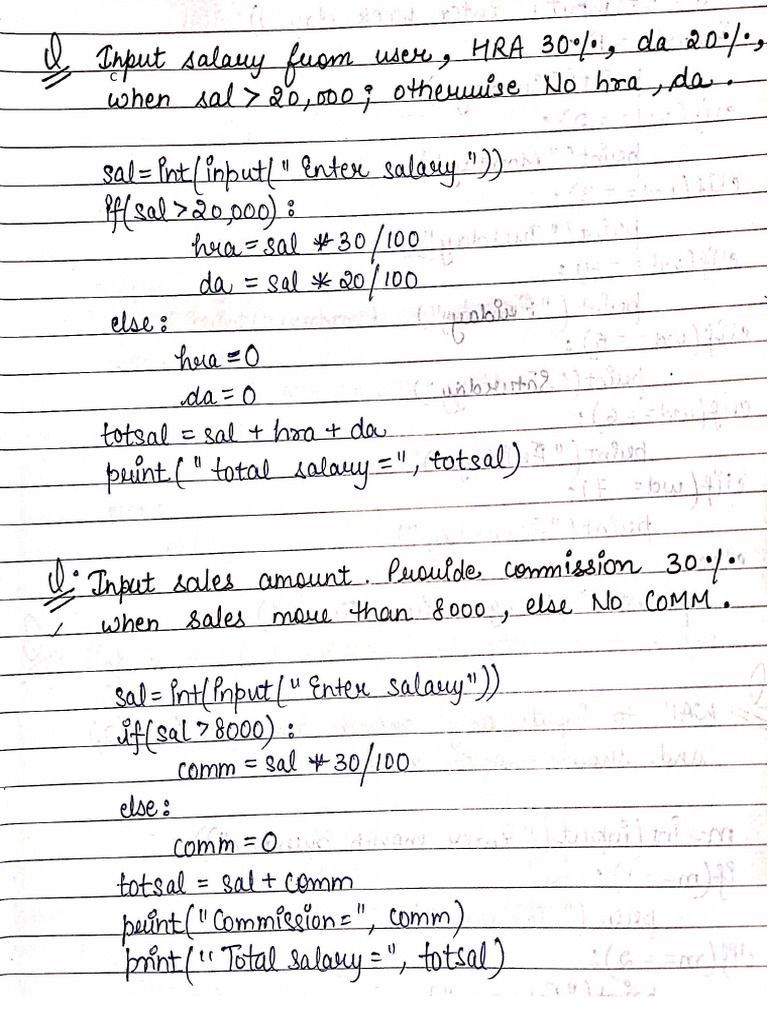 Q Input salary from user, HRA 30%, da 20%,
when sal > 20,000; otherwise No hra, da.
sal = int(input("Enter salary"))
if(sal > 20,000):
hra = sal * 30/100
da = sal * 20/100
else:
hra = 0
da = 0
totsal = sal + hra + da
print("total salary =", totsal)
Q. Input sales amount. Provide commission 30%
when sales more than 8000, else No COMM.
sal = int(input("Enter salary"))
if(sal > 8000):
comm = sal * 30/100
else:
comm = 0
totsal = sal + comm
print("Commission=", comm)
print("Total salary =", totsal)